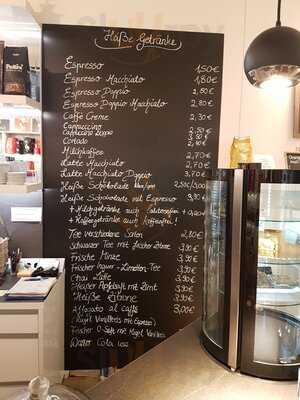 Heiße Getränke
Espresso 1,50€
Espresso Macchiato 1,80€
Espresso Doppio 2,50€
Espresso Doppio Macchiato 2,80€
Caffe Creme 2,30€
Cappuccino 2,50€
Cappuccino Doppio 3,50€
Cortado 2,10€
Milchkaffee 2,70€
Latte Macchiato 2,70€
Latte Macchiato Doppio 3,70€
Heiße Schokolade
Heiße Schokolade mit Espresso 3,90€
+ Milchgetränke auch Laktosefrei
+ Kaffeegetränke auch Koffeinfrei!
Tee verschiedene Sorten 2,80€
Schwarzer Tee mit frischer Zitrone 3,90€
Frische Minze 3,90€
Frischer Ingwer-Limetten-Tee 3,90€
Chai Latte 3,50€
Heißer Apfelsaft mit Zimt 3,50€
Heiße Zitrone 3,50€
Affogato al caffè 3,00€
(Kugel Vanilleeis mit Espresso)
Frischer O-Saft mit Kugel Vanilleeis
Cola